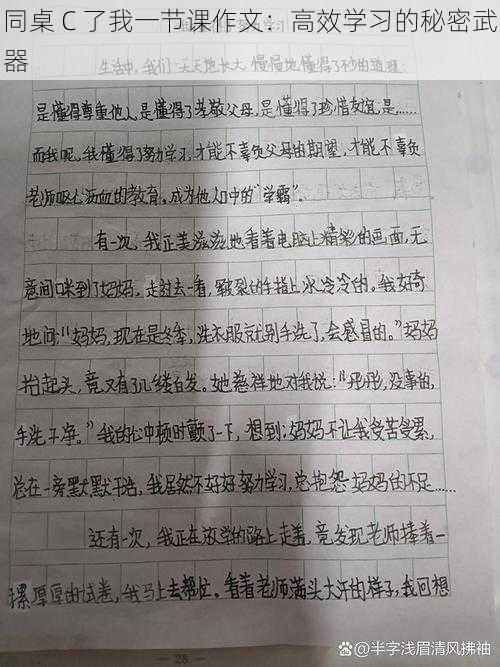 同桌 C 了我一节课作文：高效学习的秘密武
器
生活中，我们一天天地长大，慢慢地懂得了不少的道理：
是懂得尊重他人，是懂得了孝敬父母，是懂得了珍惜友谊，是……
而我呢，我懂得了努力学习，才能不辜负父母的期望，才能不辜负
老师呕心沥血的教育。成为他人口中的“学霸”。
有一次，我正美滋滋地看着电脑上精彩的画面，无
意间咪到了妈妈，走过去一看，皲裂的手指上，冰冷冷的。我好奇
地问：“妈妈，现在是冬季，洗衣服就别手洗了，会感冒的。”妈妈
抬起头，竟又有了几缕白发。她慈祥地对我说：“彤彤，没事的，
手洗干净。”我的心中顿时颤了一下，想到：妈妈不让我受苦受累，
总在一旁默默干活，我居然不好好努力学习，总抱怨妈妈的不足……
还有一次，我正在放学的路上走着，竟发现老师捧着一
摞厚厚的试卷，我马上去帮忙。看着老师满头大汗的样子，我回想
28
半字浅眉清风拂袖